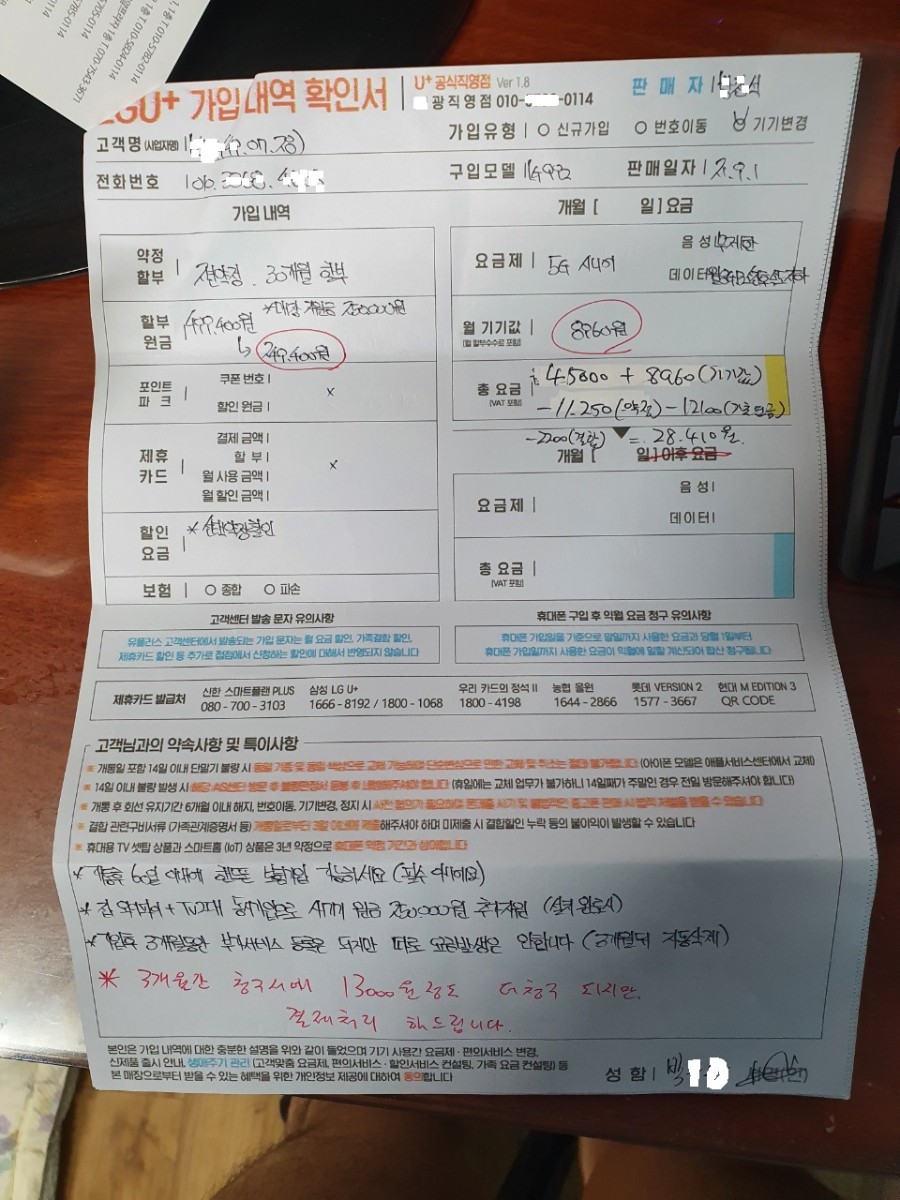 1층 T 010-5782-0114
1층 T 010-5824-0114
1층 T 070-7543-3671
5705-0114
5785-0114
LGU+ 가입내역 확인서
U+ 공식직영점 Ver 1.8
광직영점 010- -0114
판매자
고객명 (사업자명) 07.23)
가입유형 ○ 신규가입 ○ 번호이동 ○ 기기변경
전화번호 010.
구입모델
판매일자 21.9.1
가입 내역
개월 [ 일] 요금
약정
할부
30개월 할부
요금제 5G 시니어
음성 무제한
데이터
할부
원금
499.400원
250000원
↳ 249.400원
월 기기값
(월 할부수수료 포함)
8960원
포인트
파크
쿠폰 번호
할인 원금
×
총 요금
(VAT 포함)
45000 + 8960 (기기값)
-11.250 (약정) -12100 (기초연금)
-2200 (결합) = 28.410원.
제휴
카드
결제 금액
할 부
월 사용 금액
월 할인 금액
×
개월 [ 일] 이후 요금
요금제
음성
데이터
할인
요금
* 선택약정할인
총 요금
(VAT 포함)
보험 ○ 종합 ○ 파손
고객센터 발송 문자 유의사항
유플러스 고객센터에서 발송되는 가입 문자는 월 요금 할인, 가족결합 할인,
제휴카드 할인 등 추가로 접점에서 신청하는 할인에 대해서 반영되지 않습니다
휴대폰 구입 후 익월 요금 청구 유의사항
휴대폰 가입일을 기준으로 말일까지 사용한 요금과 당월 1일부터
휴대폰 가입일까지 사용한 요금이 익월에 일할 계산되어 합산 청구됩니다
제휴카드 발급처
신한 스마트플랜 PLUS
080 - 700 - 3103
삼성 LG U+
1666 - 8192 / 1800 - 1068
우리 카드의 정석 II
1800 - 4198
농협 올원
1644 - 2866
롯데 VERSION 2
1577 - 3667
현대 M EDITION 3
QR CODE
고객님과의 약속사항 및 특이사항
※ 개통일 포함 14일 이내 단말기 불량 시 동일 기종 및 동일 색상으로 교체 가능하며 단순변심으로 인한 교체 및 취소는 절대 불가합니다 (아이폰 모델은 애플서비스센터에서 교체)
※ 14일 이내 불량 발생 시 해당 AS센터 방문 후 불량판정서 동봉 후 내방해주셔야 합니다 (휴일에는 교체 업무가 불가하니 14일째가 주말인 경우 전일 방문해주셔야 합니다)
※ 개통 후 회선 유지기간 6개월 이내 해지, 번호이동, 기기변경, 정지 시
※ 결합 관련구비서류 (가족관계증명서 등) 개통일로부터 3일 이내에 제출해주셔야 하며 미제출 시 결합할인 누락 등의 불이익이 발생할 수 있습니다
※ 휴대용 TV 셋탑 상품과 스마트홈 (IoT) 상품은 3년 약정으로 휴대폰 약정 기간과 상이합니다
* 개통후 60일 이내에 핸드폰 보험가입 가능하세요 (필수 아니에요)
* 집 와이파이 + TV2대 동시가입으로 기기 원금 250,000원 추가지원 (설치 완료시)
* 가입후 3개월동안 부가서비스 등록은 되지만 따로 요금발생은 안합니다 (3개월뒤 자동삭제)
* 3개월간 청구서에 13000원정도 더청구 되지만.
결제처리 해드립니다.
본인은 가입 내역에 대한 충분한 설명을 위와 같이 들었으며 기기 사용간 요금제 · 편의서비스 변경,
신제품 출시 안내, 생애주기 관리 (고객맞춤 요금제, 편의서비스 · 할인서비스 컨설팅, 가족 요금 컨설팅) 등
본 매장으로부터 받을 수 있는 혜택을 위한 개인정보 제공에 대하여 동의합니다
성함